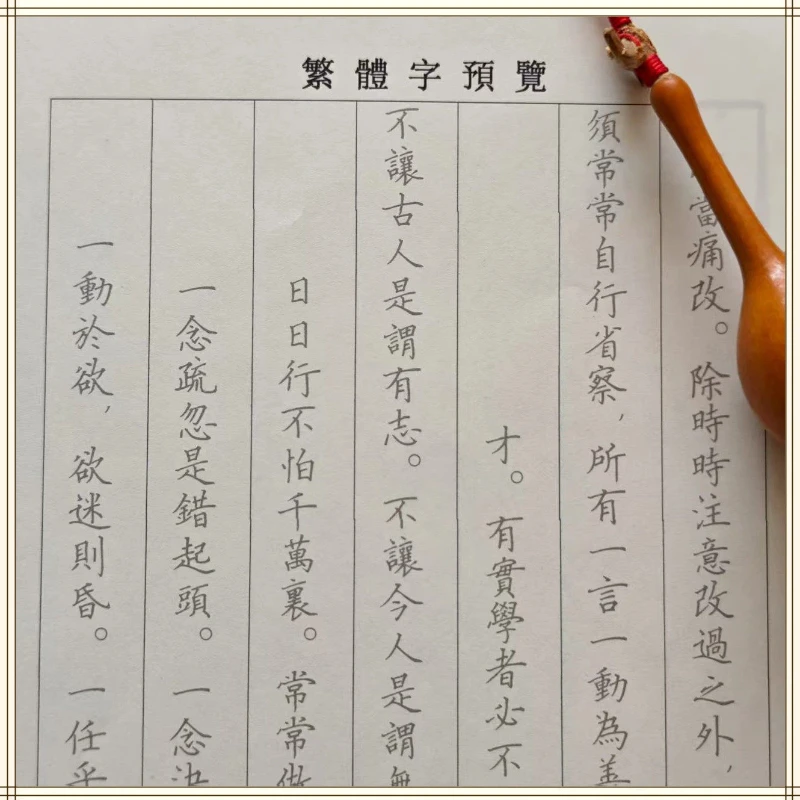 繁體字預覽
當痛改。除時時注意改過之外，
須常常自行省察，所有一言一動為善
才。有實學者必不
不讓古人是謂有志。不讓今人是謂無
日日行不怕千萬裏。常常做
一念疏忽是錯起頭。一念
一動於欲，欲迷則昏。一任乎